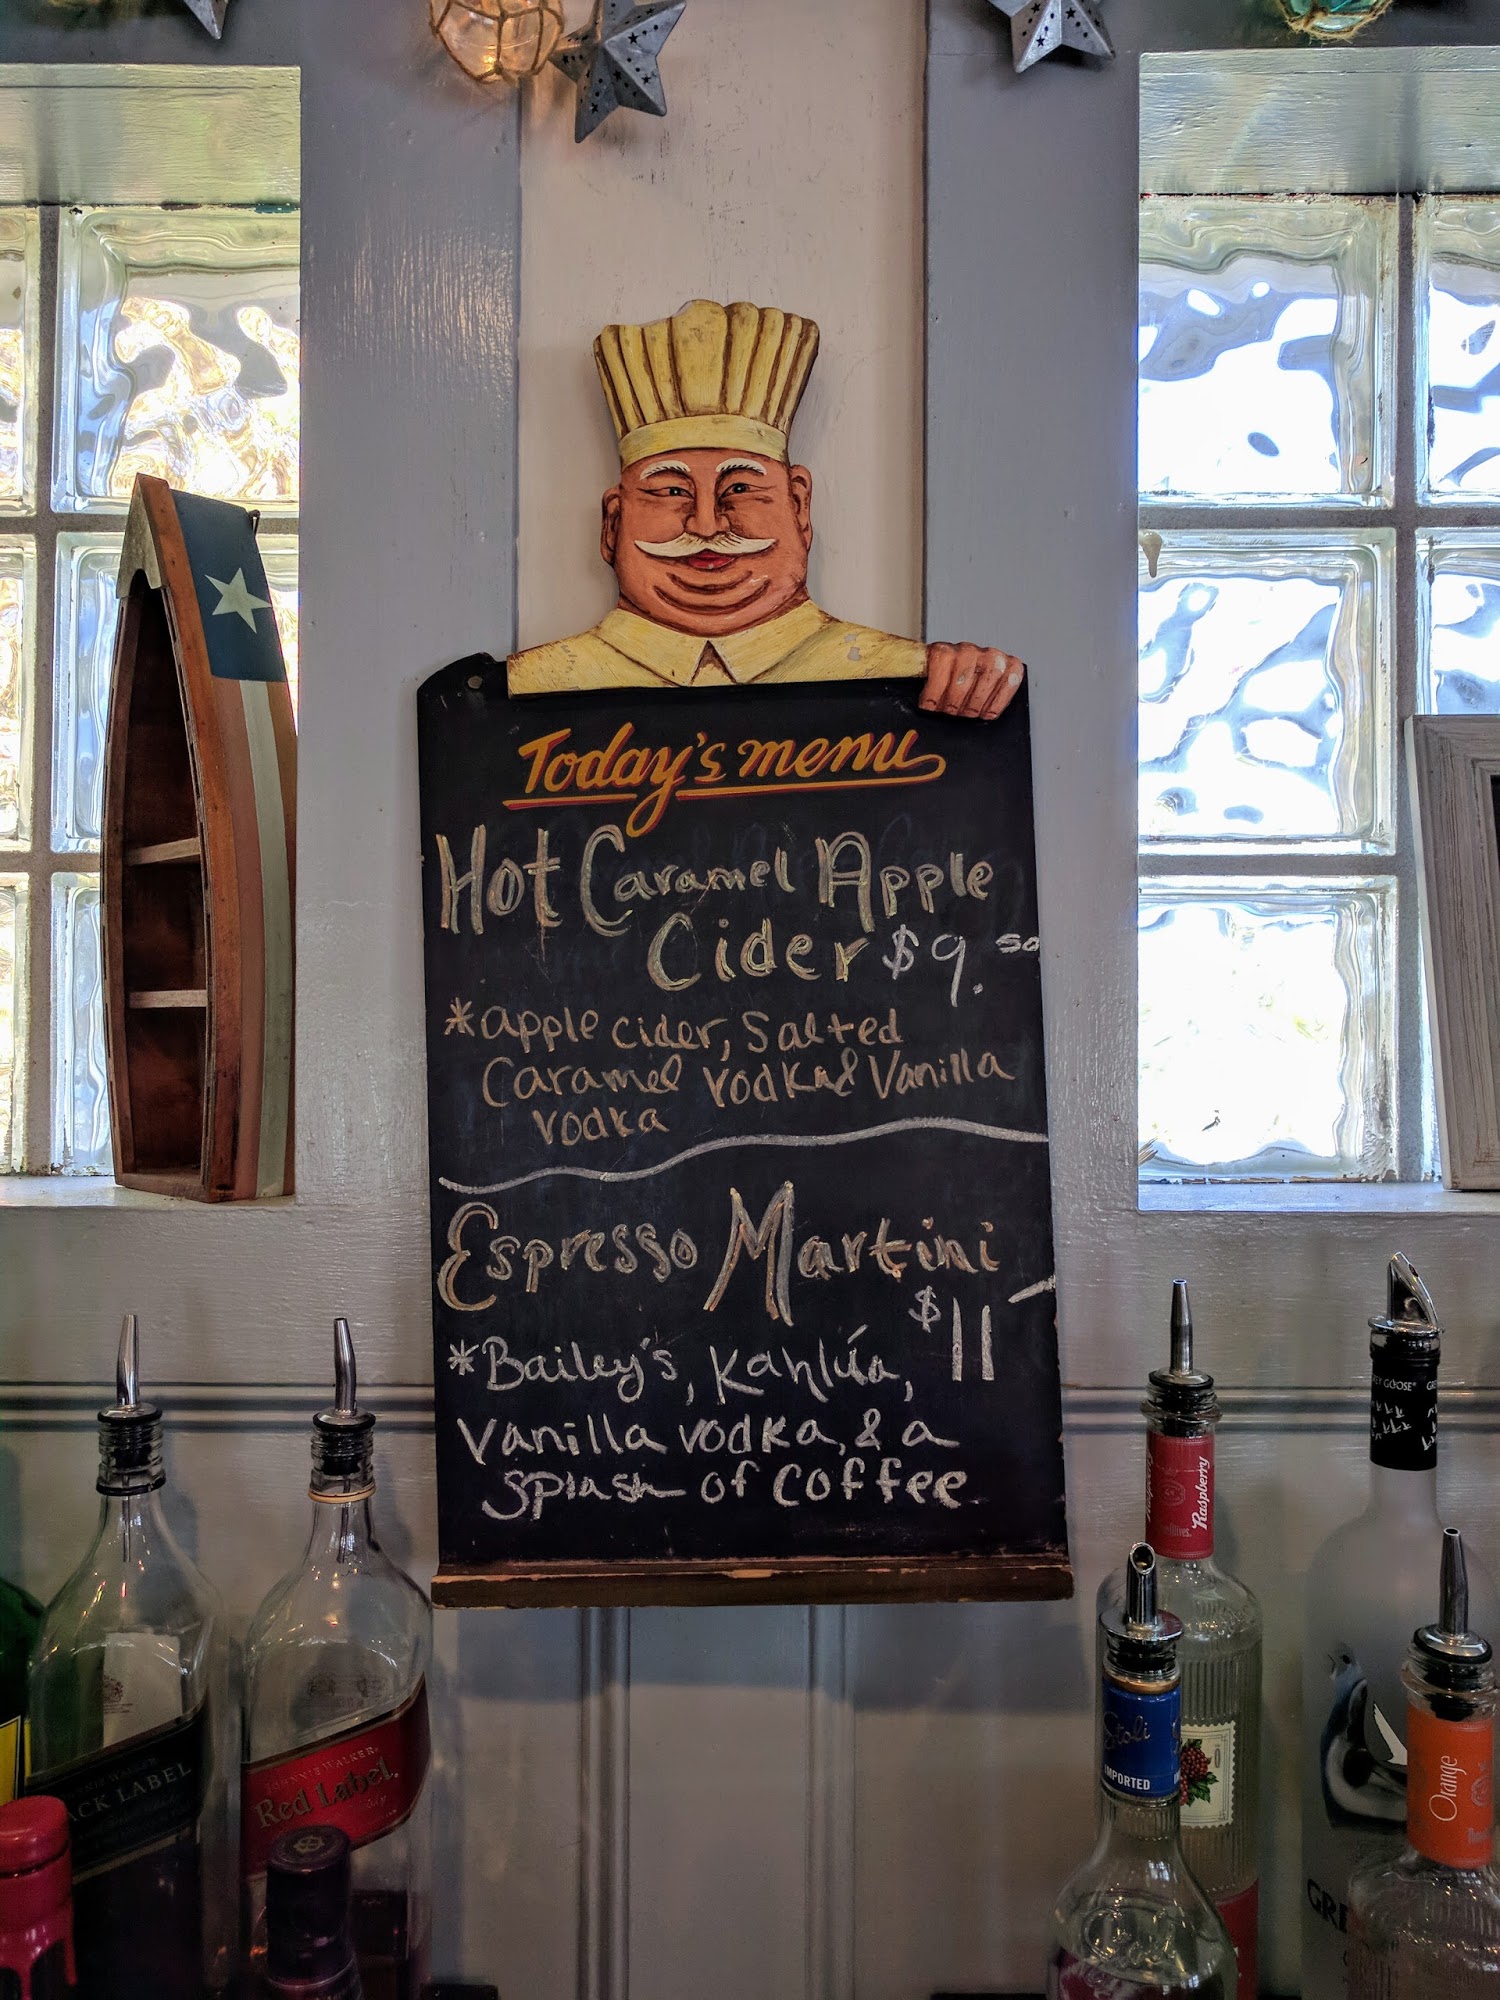 Today's menu
Hot Caramel Apple
Cider $9.50
*apple cider, Salted
Caramel vodka & Vanilla
vodka
Espresso Martini
$11-
*Bailey's, Kahlúa,
Vanilla vodka, & a
splash of coffee
GREY GOOSE
Raspberry
Stoli
IMPORTED
Orange
LABEL
JOHNNIE WALKER
Red Label